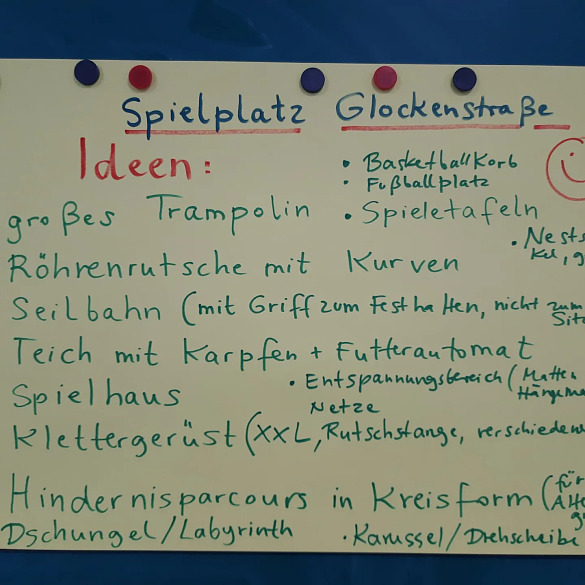 Spielplatz Glockenstraße
Ideen:
• Basketballkorb
• Fußballplatz
großes Trampolin
• Spieletafeln
Röhrenrutsche mit Kurven
Seilbahn (mit Griff zum Festhalten, nicht zum
Teich mit Karpfen + Futterautomat
Spielhaus
• Entspannungsbereich (Matten
Netze
Klettergerüst (XXL, Rutschstange,
Hindernisparcours in Kreisform (für
Dschungel/Labyrinth
• Karussel/Drehscheibe